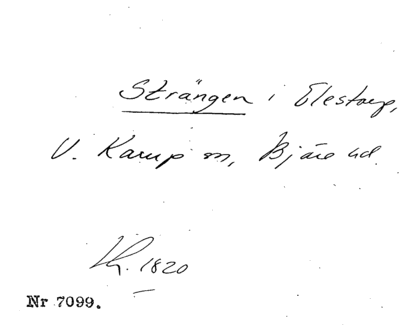 Strängen i Elestorp,
V. Karup sn, Bjäre hd.
Lh. 1820
Nr 7099.